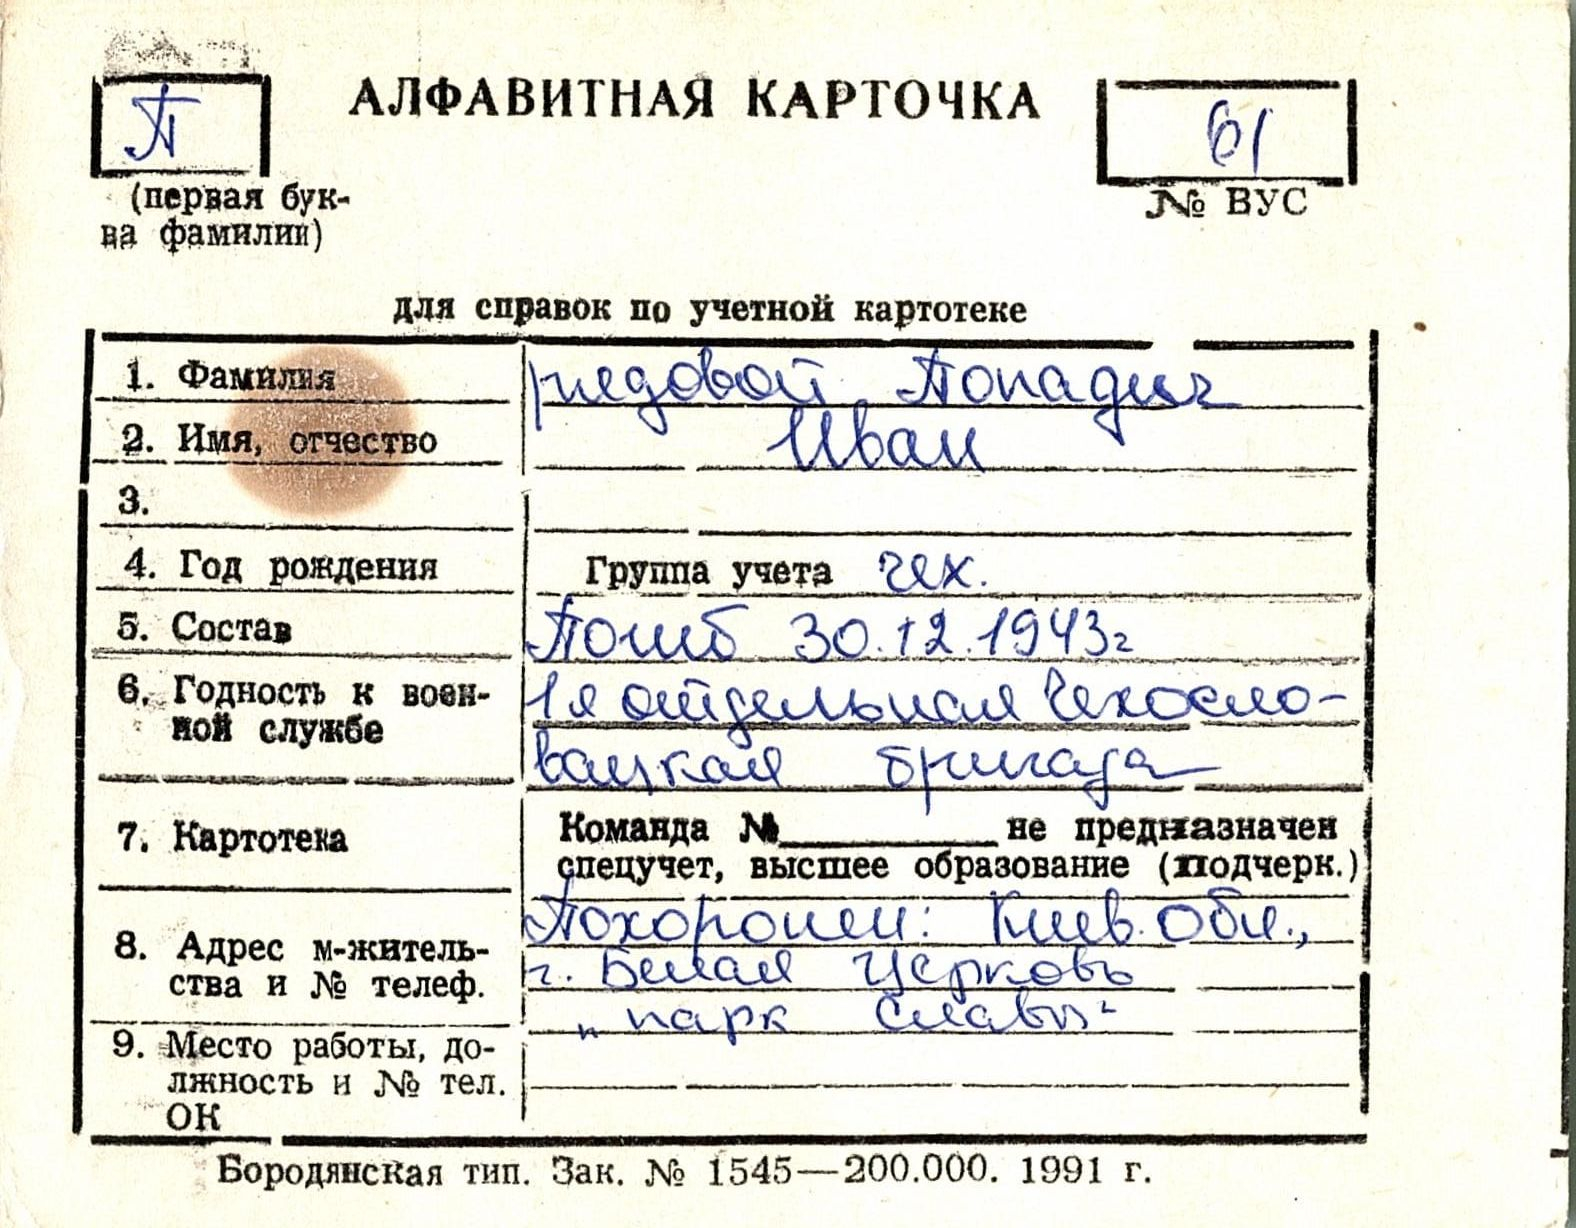 АЛФАВИТНАЯ КАРТОЧКА
П
61
(первая бук-
ва фамилии)
№ ВУС
для справок по учетной картотеке
1. Фамилия рядовой Попадич
2. Имя, отчество Иван
3.
4. Год рождения Группа учета чех.
5. Состав Погиб 30.12.1943г
6. Годность к воен-
ной службе
1я отдельная Чехосло-
вацкая бригада
7. Картотека
Команда №__________не предназначен
спецучет, высшее образование (подчерк.)
8. Адрес м-житель-
ства и № телеф.
Похоронен: Киев. обл.,
г. Белая Церковь
„парк Славы"
9. Место работы, до-
лжность и № тел.
ОК
Бородянская тип. Зак. № 1545—200.000. 1991 г.